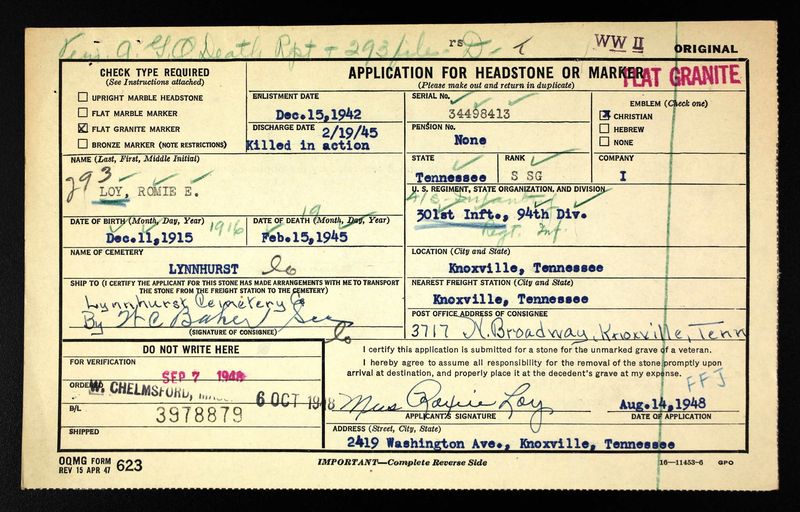 Veri. A.G.O Death Rpt + 293 files. D-
rs
WW II
ORIGINAL
CHECK TYPE REQUIRED
(See Instructions attached)
UPRIGHT MARBLE HEADSTONE
FLAT MARBLE MARKER
X FLAT GRANITE MARKER
BRONZE MARKER (NOTE RESTRICTIONS)
APPLICATION FOR HEADSTONE OR MARKER
FLAT GRANITE
(Please make out and return in duplicate)
ENLISTMENT DATE
Dec.15,1942
DISCHARGE DATE 2/19/45
Killed in action
SERIAL No.
34498413
PENSION No.
None
EMBLEM (Check one)
X CHRISTIAN
HEBREW
NONE
STATE
Tennessee
RANK
S SG
COMPANY
I
NAME (Last, First, Middle Initial)
293
LOY, ROMIE E.
U. S. REGIMENT, STATE ORGANIZATION, AND DIVISION
301st Inft., 94th Div.
Regt. Inf.
DATE OF BIRTH (Month, Day, Year) 1916
Dec.11,1915
DATE OF DEATH (Month, Day, Year)
19
Feb.15,1945
NAME OF CEMETERY
LYNNHURST
LOCATION (City and State)
Knoxville, Tennessee
SHIP TO (I CERTIFY THE APPLICANT FOR THIS STONE HAS MADE ARRANGEMENTS WITH ME TO TRANSPORT
THE STONE FROM THE FREIGHT STATION TO THE CEMETERY)
Lynnhurst Cemetery Co
By H C Baker Sec
(SIGNATURE OF CONSIGNEE)
NEAREST FREIGHT STATION (City and State)
Knoxville, Tennessee
POST OFFICE ADDRESS OF CONSIGNEE
3717 N. Broadway, Knoxville, Tenn
DO NOT WRITE HERE
FOR VERIFICATION
SEP 7 1948
ORDERED
W. CHELMSFORD, MASS.
6 OCT 1948
B/L
3978879
SHIPPED
I certify this application is submitted for a stone for the unmarked grave of a veteran.
I hereby agree to assume all responsibility for the removal of the stone promptly upon
arrival at destination, and properly place it at the decedent's grave at my expense.
FFJ
Mrs Romie Loy
APPLICANT'S SIGNATURE
Aug.14,1948
DATE OF APPLICATION
ADDRESS (Street, City, State)
2419 Washington Ave., Knoxville, Tennessee
OQMG FORM
REV 15 APR 47 623
IMPORTANT—Complete Reverse Side
16—11453-6 GPO